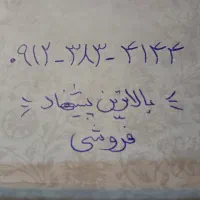 ۰۹۱۲-۳۸۳-۴۱۴۴
بالاترین پیشنهاد
فروشی